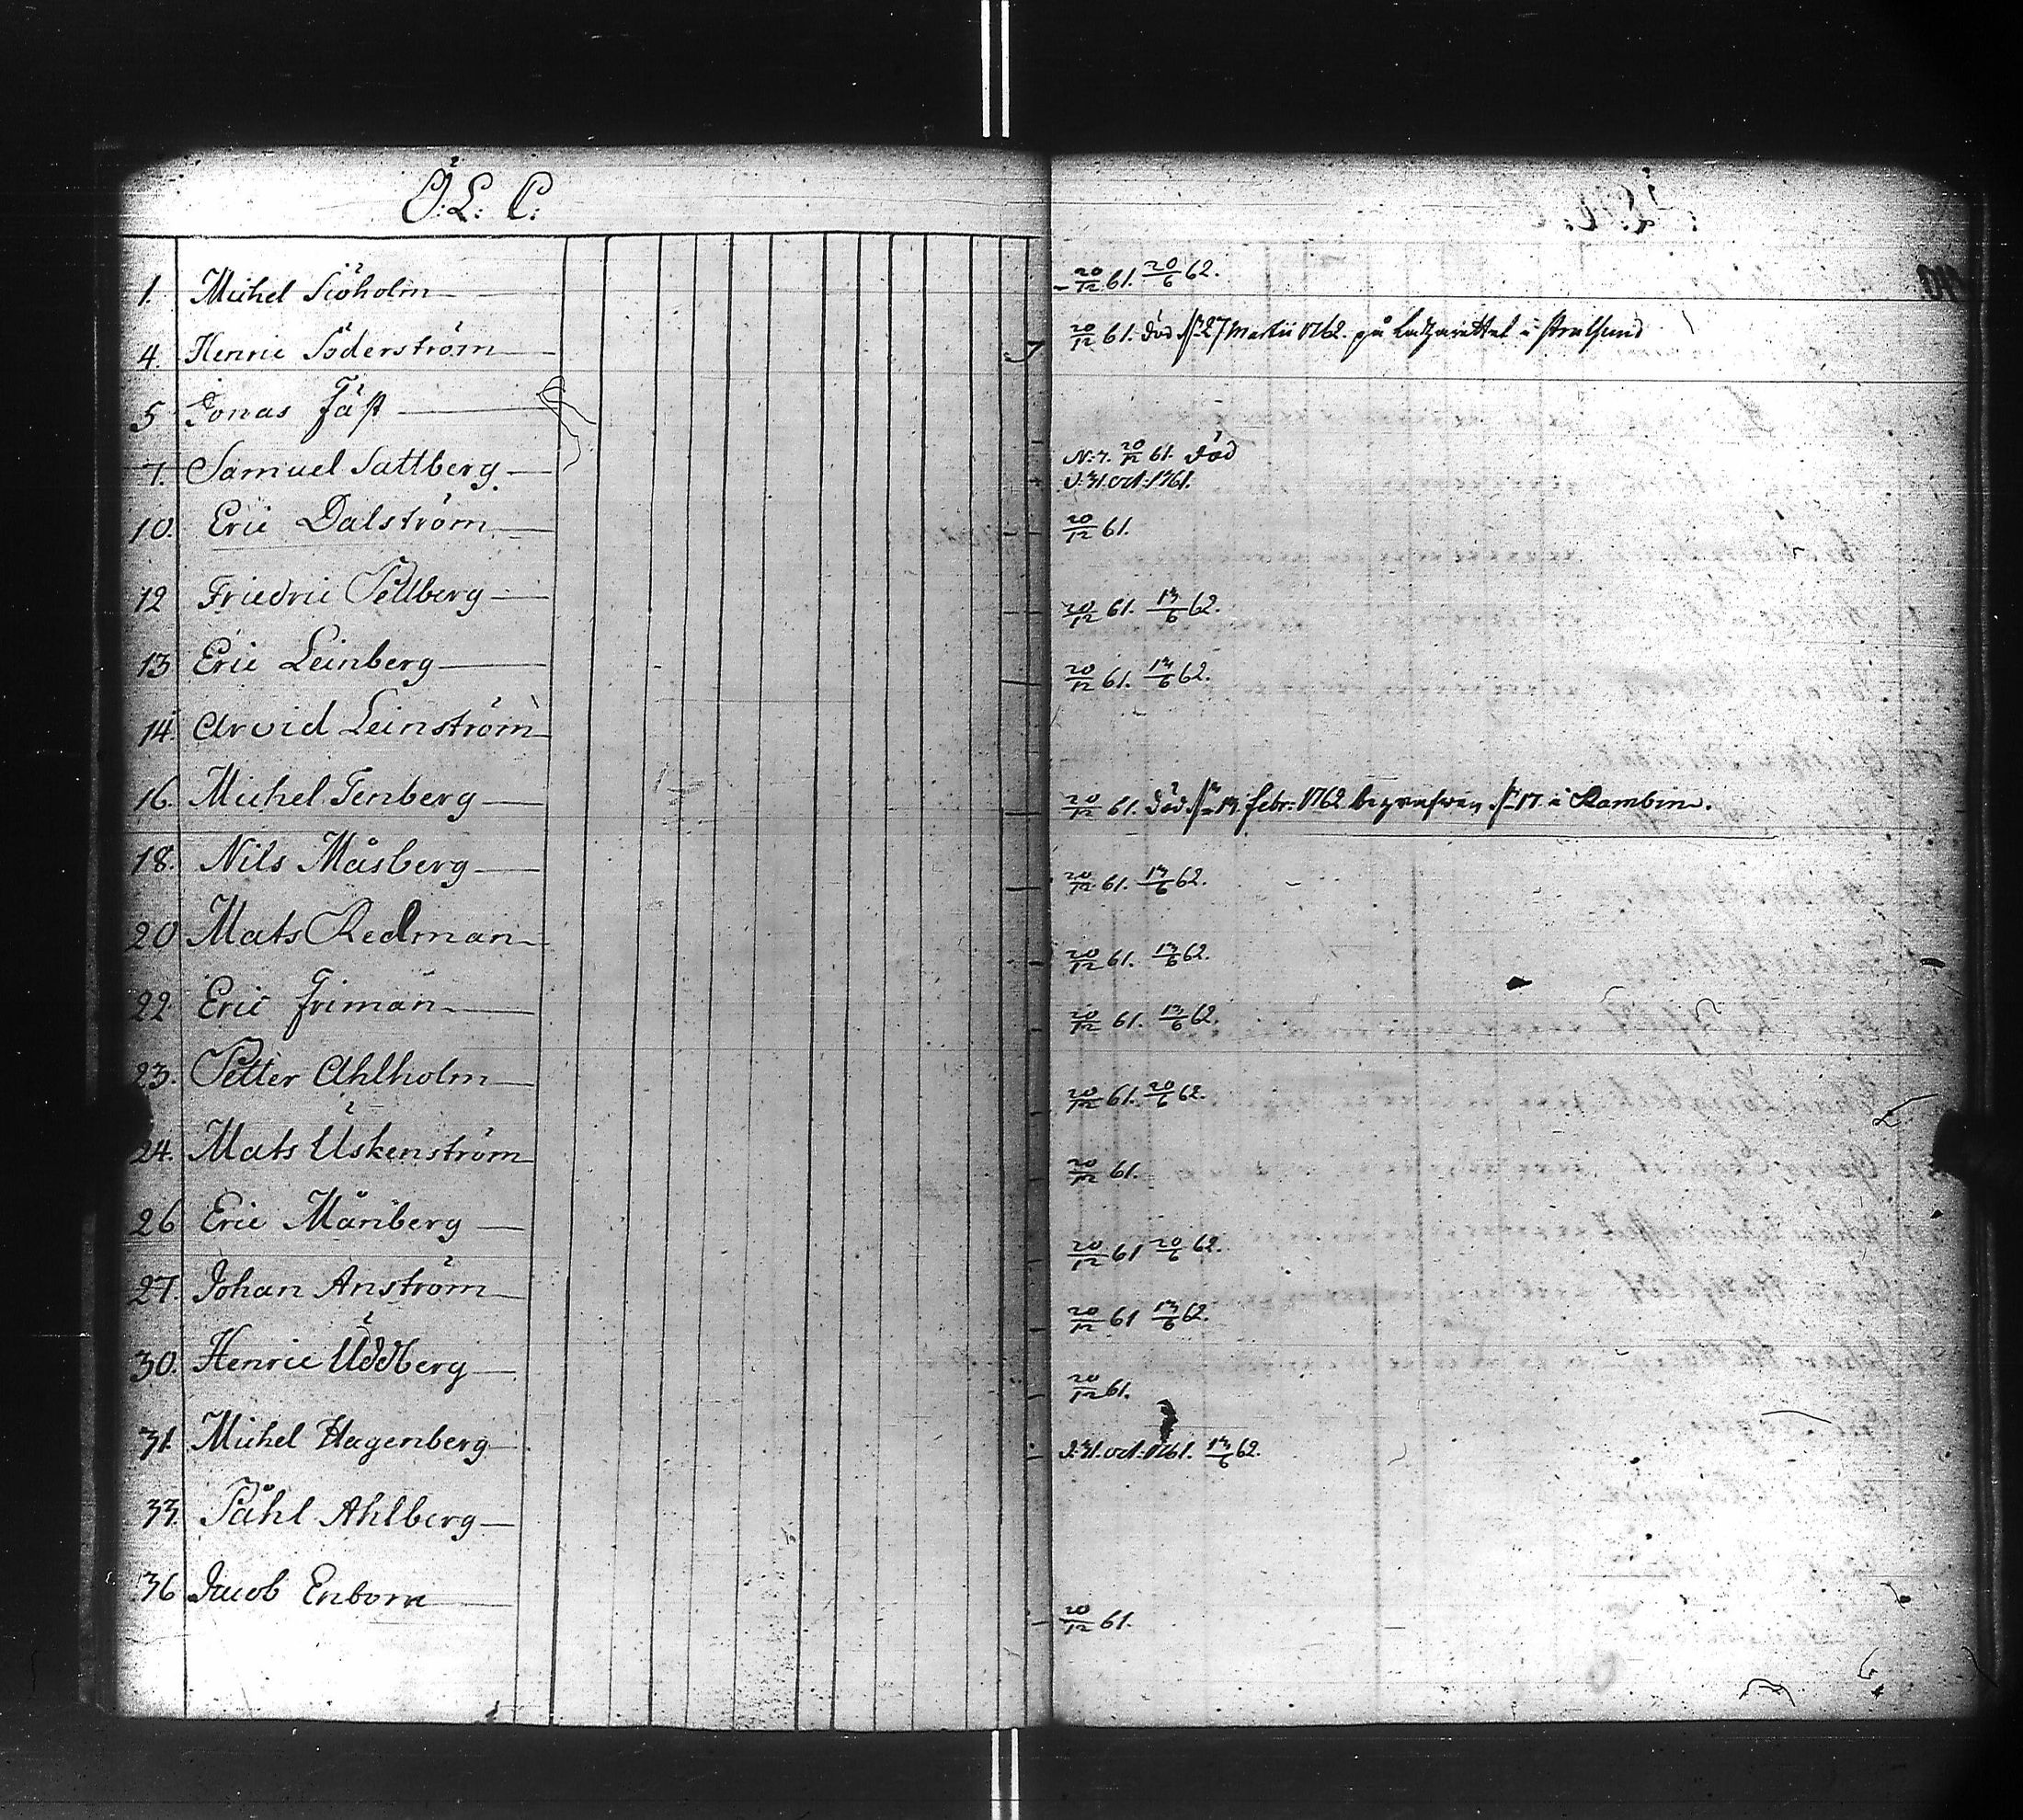 Ö: L: C:
1. Michel Siöholm 20/12 61. 20/6 62.
4. Henric Söderström 20/12 61. död d. 27 Martii 1762. på Latzarettet i Stralsund
5 Jonas Fäst
7. Samuel Sattberg N:7. 20/12 61. död
d: 31. oct: 1761.
10. Eric Dalström 20/12 61.
12 Friedric Pellberg 20/12 61. 13/6 62.
13 Eric Leinberg 20/12 61. 13/6 62.
14. Arvid Leinström
16. Michel Tenberg 20/12 61. död d. 13 febr: 1762 begrafven d. 17. i Rambin.
18. Nils Måsberg 20/12 61. 13/6 62.
20 Mats Redman 20/12 61. 13/6 62.
22 Eric Friman 20/12 61. 13/6 62.
23. Petter Ahlholm 20/12 61. 20/6 62.
24. Mats Uskenström 20/12 61.
26 Eric Månberg 20/12 61 20/6 62.
27. Johan Anström 20/12 61 13/6 62.
30. Henric Uddberg 20/12 61.
31. Michel Hagenberg d: 31. oct: 1761. 13/6 62.
33. Påhl Ahlberg
36 Jacob Enborn 20/12 61.